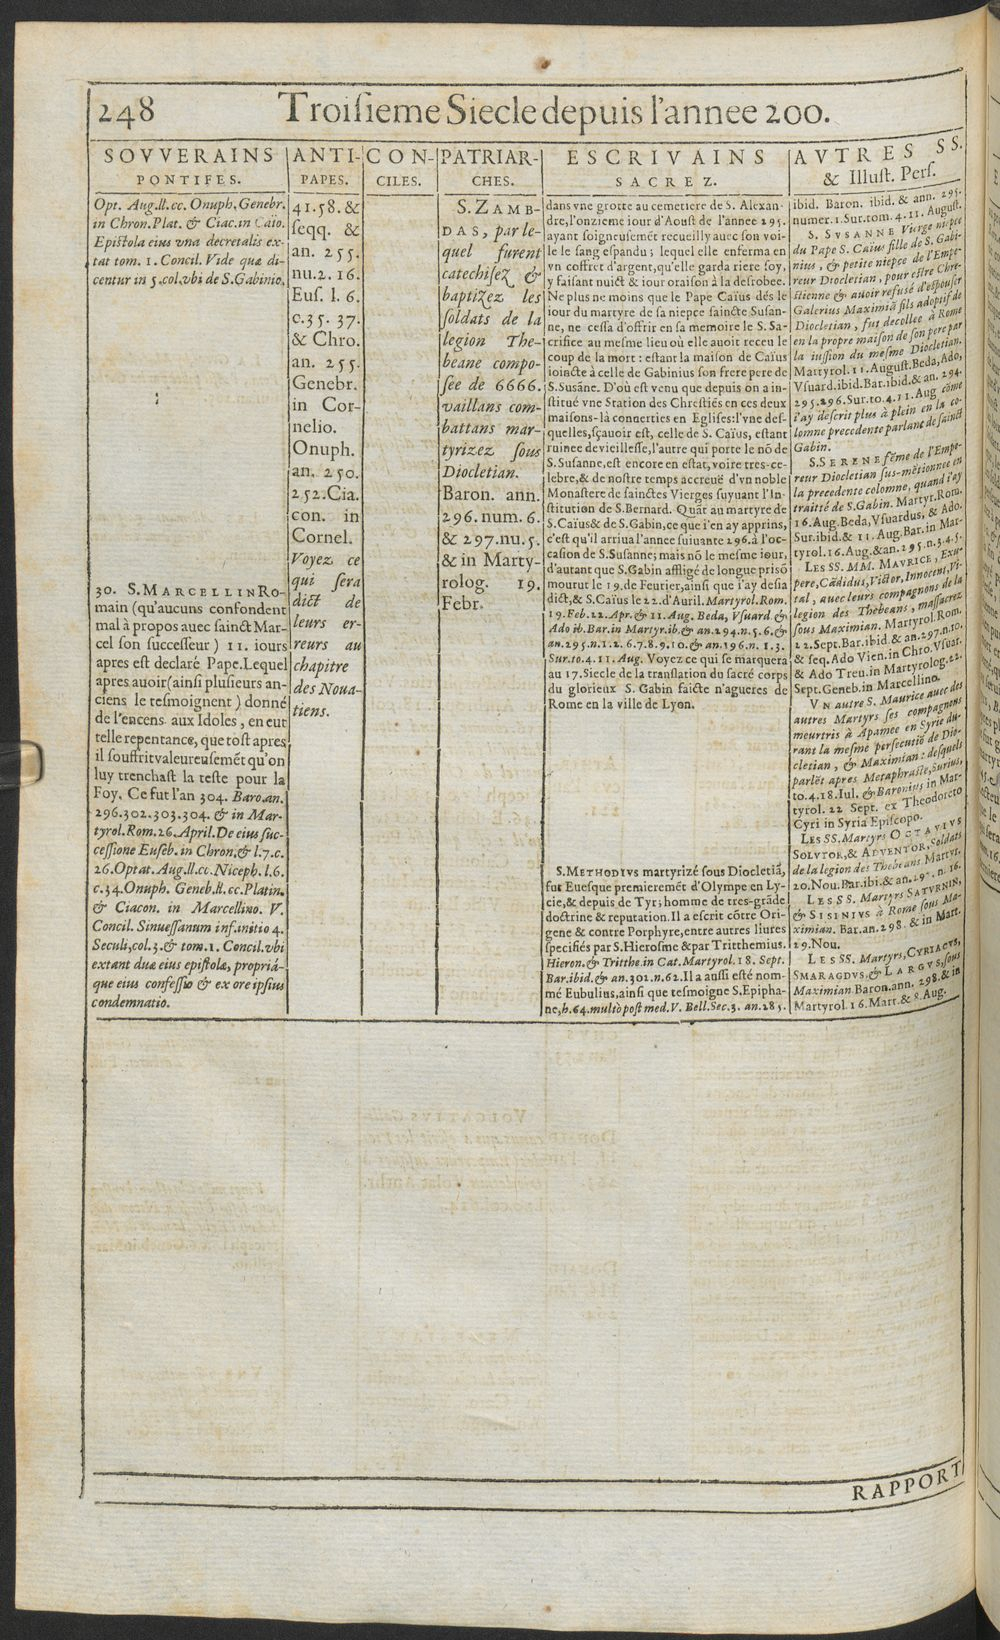 248 Troisieme Siecle depuis l'annee 200.
SOVVERAINS
PONTIFES.
Opt. Aug. ll. cc. Onuph, Genebr.
in Chron. Plat. & Ciac. in Caïo.
Epistola eius vna decretalis ex-
tat tom. 1. Concil. Vide quæ di-
centur in 5. col. vbi de S. Gabinio.
30. S. MARCELLIN Ro-
main (qu'aucuns confondent
mal à propos auec sainct Mar-
cel son successeur) 11. iours
apres est declaré Pape. Lequel
apres auoir (ainsi plusieurs an-
ciens le tesmoignent) donné
de l'encens aux Idoles, en eut
telle repentance, que tost apres
il souffrit valeureusemét qu'on
luy trenchast la teste pour la
Foy. Ce fut l'an 304. Baro. an.
296. 302. 303. 304. & in Mar-
tyrol. Rom. 26. April. De eius suc-
cessione Euseb. in Chron. & l. 7. c.
26. Optat. Aug. ll. cc. Niceph. l. 6.
c. 34. Onuph. Geneb. ll. cc. Platin.
& Ciacon. in Marcellino. V.
Concil. Sinuessanum inf. initio 4.
Seculi, col. 3. & tom. 1. Concil. vbi
extant duæ eius epistolæ, propriá-
que eius confessio & ex ore ipsius
condemnatio.
ANTI-
PAPES.
41. 58. &
seqq. &
an. 255.
nu. 2. 16.
Eus. l. 6.
c. 35. 37.
& Chro.
an. 255.
Genebr.
in Cor-
nelio.
Onuph.
an. 250.
252. Cia.
con. in
Cornel.
Voyez ce
qui sera
dict de
leurs er-
reurs au
chapitre
des Noua-
tiens.
CON-
CILES.
PATRIAR-
CHES.
S. ZAMB-
DAS, par le-
quel furent
catechisez &
baptizez les
soldats de la
legion The-
beane compo-
see de 6666.
vaillans com-
battans mar-
tyrizez sous
Diocletian.
Baron. ann.
296. num. 6.
& 297. nu. 5.
& in Marty-
rolog. 19.
Febr.
ESCRIVAINS
SACREZ.
dans vne grotte au cemetiere de S. Alexan-
dre, l'onzieme iour d'Aoust de l'annee 295.
ayant soigneusemét recueilly auec son voi-
le le sang espandu; lequel elle enferma en
vn coffret d'argent, qu'elle garda riere soy,
y faisant nuict & iour oraison à la desrobee.
Ne plus ne moins que le Pape Caïus dés le
iour du martyre de sa niepce saincte Susan-
ne, ne cessa d'offrir en sa memoire le S. Sa-
crifice au mesme lieu où elle auoit receu le
coup de la mort: estant la maison de Caïus
ioincte à celle de Gabinius son frere pere de
S. Susãne. D'où est venu que depuis on a in-
stitué vne Station des Chrestiẽs en ces deux
maisons-là conuerties en Eglises: l'vne des-
quelles, sçauoir est, celle de S. Caïus, estant
ruinee de vieillesse, l'autre qui porte le nõ de
S. Susanne, est encore en estat, voire tres-ce-
lebre, & de nostre temps accreuë d'vn noble
Monastere de sainctes Vierges suyuant l'In-
stitution de S. Bernard. Quãt au martyre de
S. Caïus & de S. Gabin, ce que i'en ay apprins,
c'est qu'il arriua l'annee suiuante 296. à l'oc-
casion de S. Susanne; mais nõ le mesme iour,
d'autant que S. Gabin affligé de longue prisõ
mourut le 19. de Feurier, ainsi que i'ay desia
dict, & S. Caïus le 22. d'Auril. Martyrol. Rom.
19. Feb. 22. Apr. & 11. Aug. Beda, Vsuard &
Ado ib. Bar. in Martyr. ib. & an. 294. n. 5. 6. &
an. 295. n. 1. 2. 6. 7. 8. 9. 10. & an. 196. n. 1. 3.
Sur. to. 4. 11. Aug. Voyez ce qui se marquera
au 17. Siecle de la translation du sacré corps
du glorieux S. Gabin faicte n'agueres de
Rome en la ville de Lyon.
S. METHODIVS martyrizé sous Diocletiã,
fut Euesque premieremét d'Olympe en Ly-
cie, & depuis de Tyr; homme de tres-grãde
doctrine & reputation. Il a escrit cõtre Ori-
gene & contre Porphyre, entre autres liures
specifiés par S. Hierosme & par Tritthemius.
Hieron. & Tritthe. in Cat. Martyrol. 18. Sept.
Bar. ibid. & an. 302. n. 62. Il a aussi esté nom-
mé Eubulius, ainsi que tesmoigne S. Epipha-
ne, h. 64. multò post med. V. Bell. Sec. 3. an. 285.
AVTRES SS.
& Illust. Pers.
ibid. Baron. ibid. & ann. 295.
numer. 1. Sur. tom. 4. 11. August.
S. SVSANNE Vierge niepce
du Pape S. Caius fille de S. Gabi-
nius, & petite niepce de l'Empe-
reur Diocletian, pour estre Chre-
stienne & auoir refusé d'espouser
Galerius Maximiã fils adoptif de
Diocletian, fut decollee à Rome
en la propre maison de son pere par
la iussion du mesme Diocletian.
Martyrol. 11. August. Beda, Ado,
Vsuard. ibid. Bar. ibid. & an. 294.
295. 296. Sur. to. 4. 11. Aug cõme
i'ay descrit plus à plein en la co-
lomne precedente parlant de sainct
Gabin.
S. SERENE féme de l'Empe-
reur Diocletian sus-métionnee en
la precedente colomne, quand i'ay
traitté de S. Gabin. Martyr. Rom.
16. Aug. Beda, Vsuardus, & Ado.
Sur. ibid. & 11. Aug. Bar. in Mar-
tyrol. 16. Aug. & an. 295. n. 3. 4. 5.
LES SS. MM. MAVRICE, Exu-
pere, Cãdidus, Victor, Innocent, Vi-
tal, auec leurs compagnons de la
legion des Thebeans, massacrez
sous Maximian. Martyrol. Rom.
22. Sept. Bar. ibid. & an. 297. n. 10.
& seq. Ado Vien. in Chro. Vsuar.
& Ado Treu. in Martyrolog. 22.
Sept. Geneb. in Marcellino.
VN autre S. Maurice auec des
autres Martyrs ses compagnons
meurtris à Apamee en Syrie du-
rant la mesme persecutiõ de Dio-
cletian, & Maximian: desquels
parlẽt apres Metaphraste, Surius,
to. 4. 18. Iul. & Baronius in Mar-
tyrol. 22. Sept. ex Theodoreto
Cyri in Syria Episcopo.
LES SS. Martyrs OCTAVIVS
SOLVTOR, & ADVENTOR, Soldats
de la legion des Thebeans Martyr.
20. Nou. Bar. ibi. & an. 297. n. 16.
LES SS. Martyrs SATVRNIN,
& SISINIVS à Rome sous Ma-
ximian. Bar. an. 298. & in Mart.
29. Nou.
LES SS. Martyrs, CYRIACVS,
SMARAGDVS, & LARGVS, sous
Maximian Baron. ann. 298. & in
Martyrol. 16. Mart. & 8. Aug.
RAPPORT